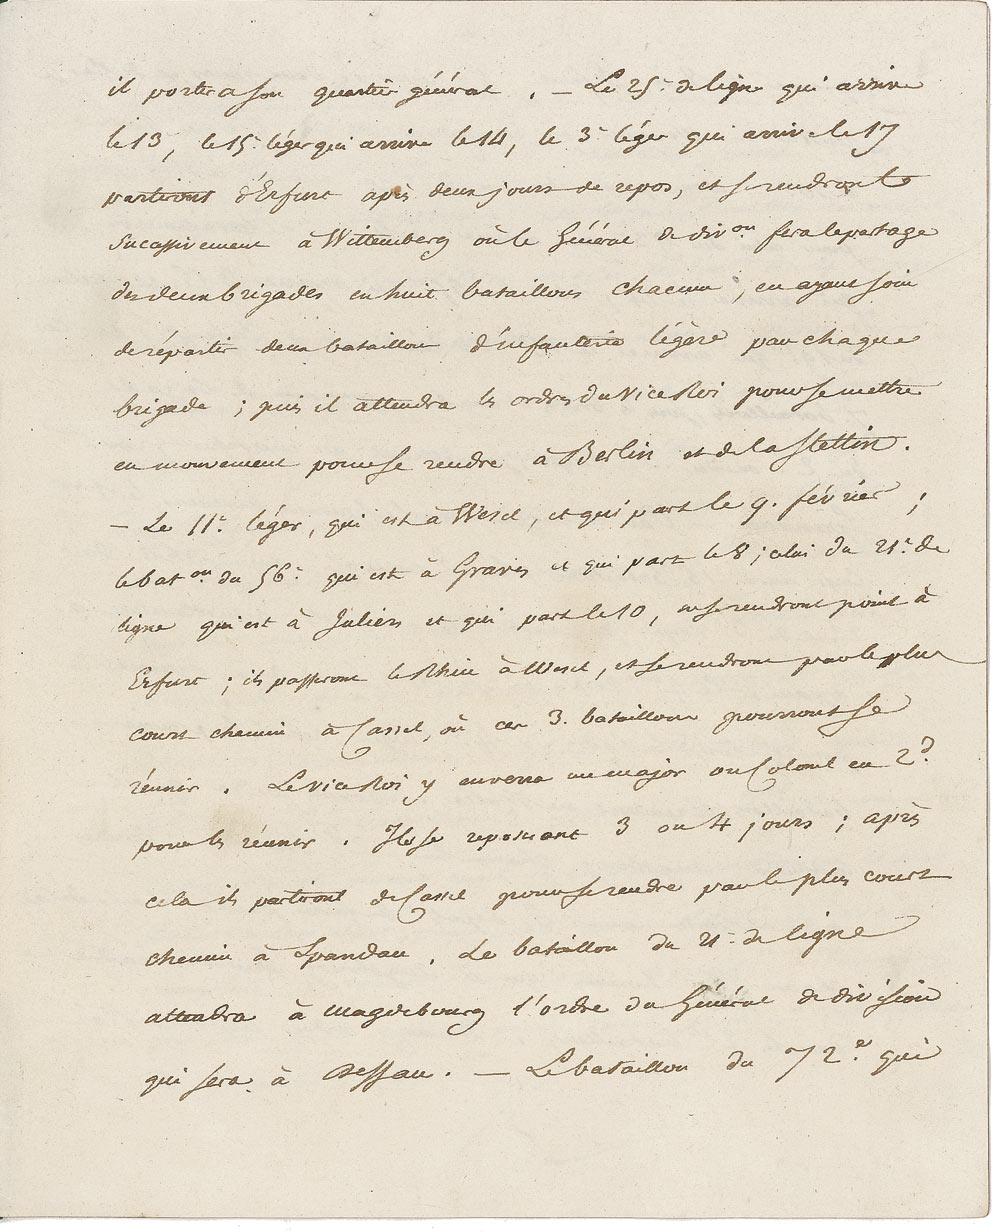 il portera son quartier général . — Le 25.e de ligne qui arrive
le 13, le 15.e léger qui arrive le 14, le 3.e léger qui arrive le 17
partiront d'Erfurt après deux jours de repos, et se rendront
successivement à Wittemberg où le Général de divon fera le partage
des deux brigades en huit bataillons chacune, en ayant soin
de répartir deux bataillons d'infanterie légère par chaque
brigade ; puis il attendra les ordres du Vice Roi pour se mettre
en mouvement pour se rendre à Berlin et de là Stettin.
— Le 11.e léger, qui est à Wesel, et qui part le 9. février,
le baton du 56.e qui est à Graves et qui part le 8 ; celui du 21.e de
ligne qui est à Juliers et qui part le 10, ne se rendront point à
Erfurt ; ils passeront le Rhin à Wesel, et se rendront par le plus
court chemin à Cassel, où ces 3. bataillons pourront se
réunir . Le Vice Roi y enverra un major ou Colonel en 2.d
pour les réunir . Ils se reposeront 3 ou 4 jours ; après
cela ils partiront de Cassel pour se rendre par le plus court
chemin à Spandau . Le bataillon du 21.e de ligne
attendra à Magdebourg l'ordre du Général de division
qui sera à Dessau. — Le bataillon du 72.e qui